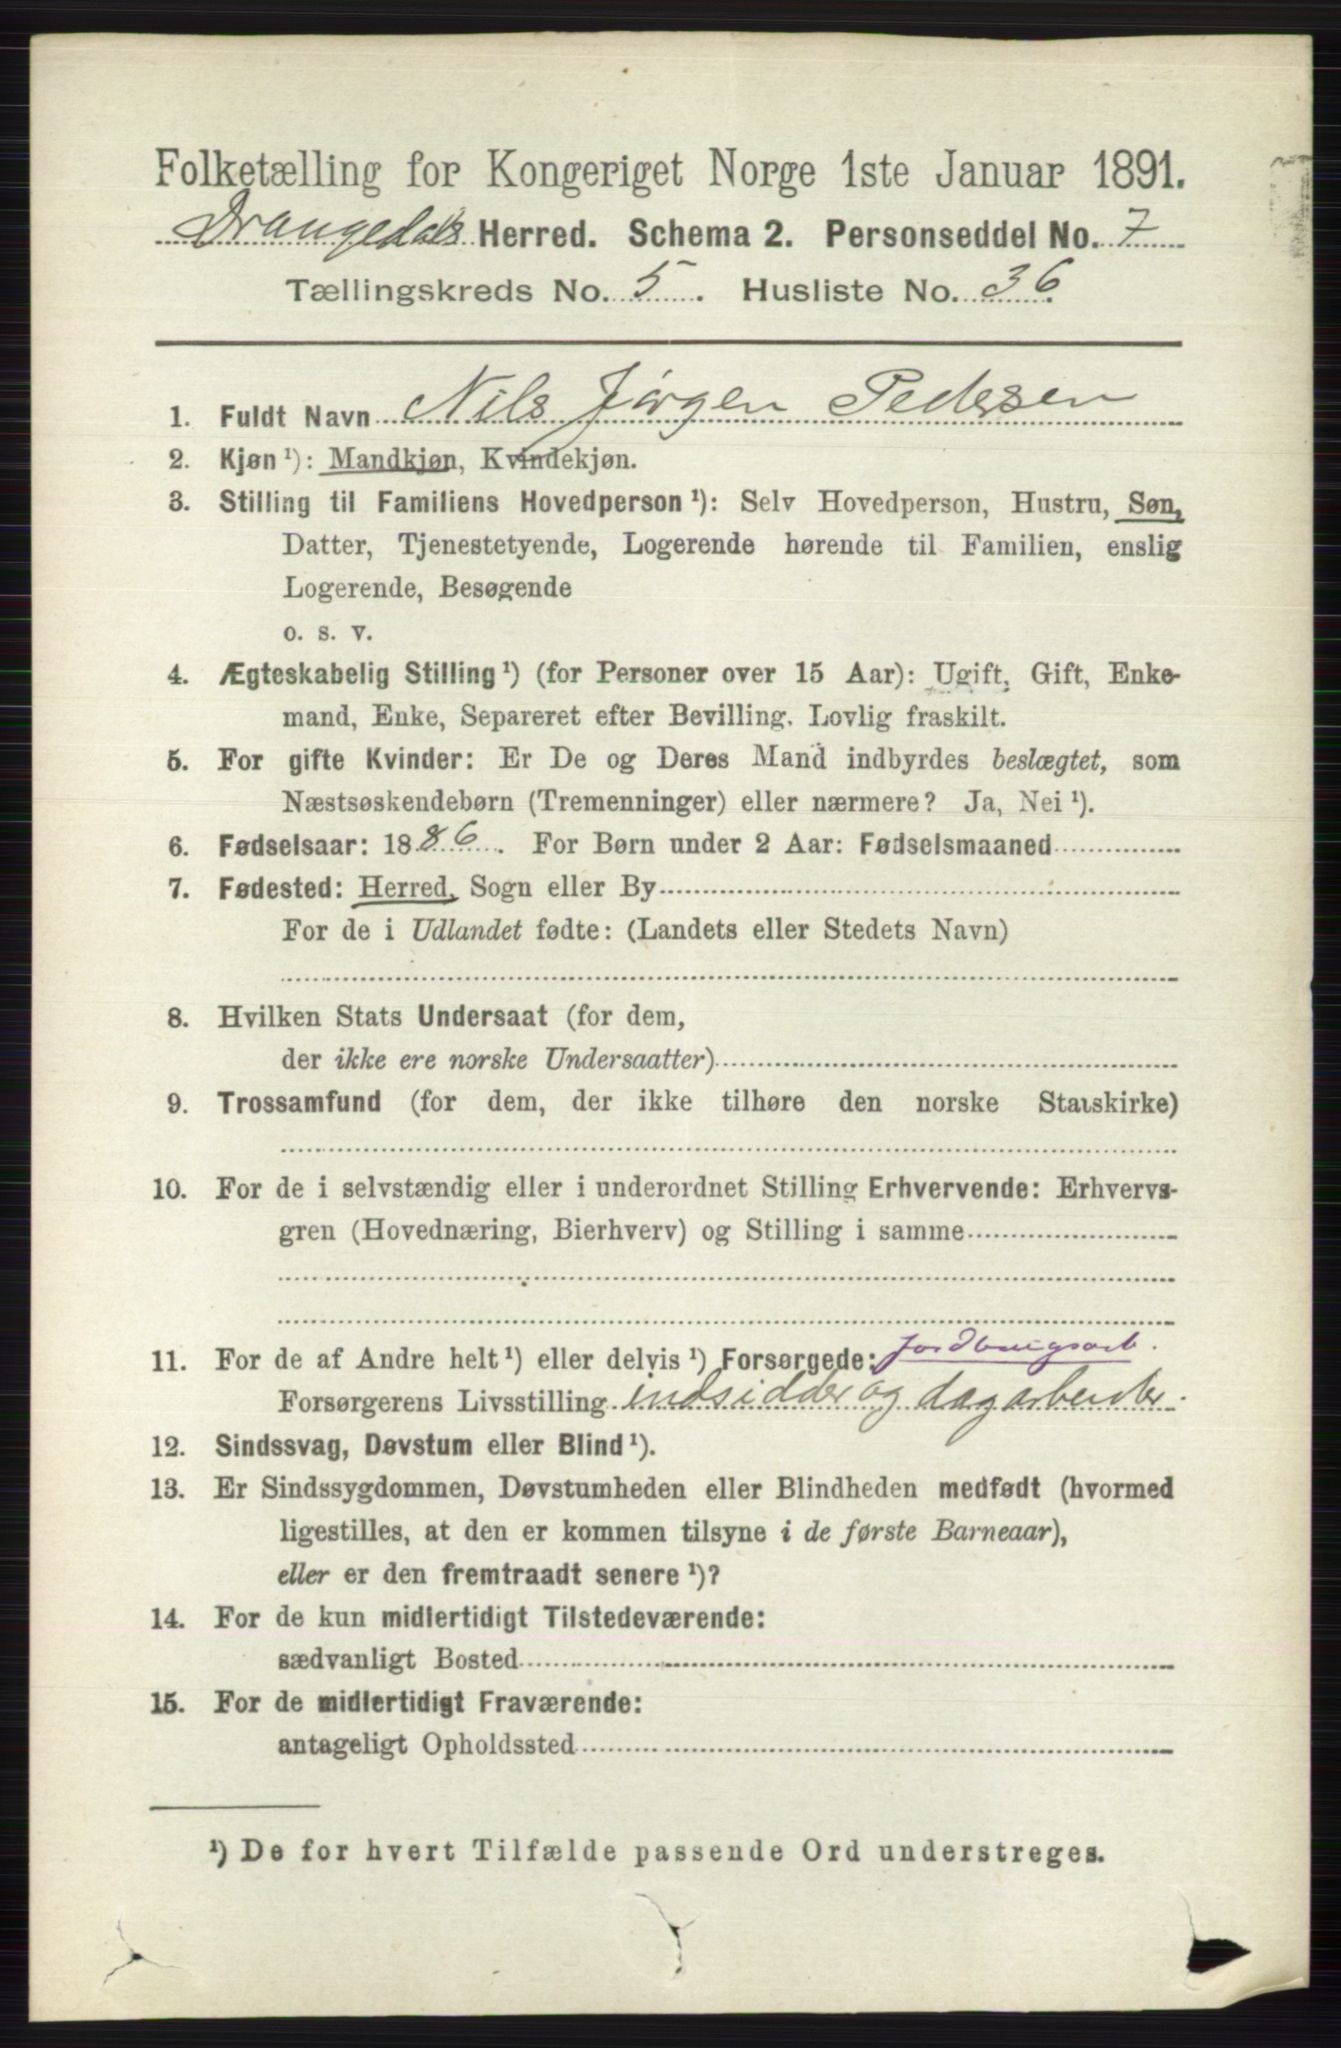 Folketælling for Kongeriget Norge 1ste Januar 1891.
Drangedals Herred. Schema 2. Personseddel No. 7
Tællingskreds No. 5. Husliste No. 36
1. Fuldt Navn Nils Jörgen Pedersen
2. Kjøn ¹): Mandkjøn, Kvindekjøn.
3. Stilling til Familiens Hovedperson ¹): Selv Hovedperson, Hustru, Søn,
Datter, Tjenestetyende, Logerende hørende til Familien, enslig
Logerende, Besøgende
o. s. v.
4. Ægteskabelig Stilling ¹) (for Personer over 15 Aar): Ugift, Gift, Enke-
mand, Enke, Separeret efter Bevilling. Lovlig fraskilt.
5. For gifte Kvinder: Er De og Deres Mand indbyrdes beslægtet, som
Næstsøskendebørn (Tremenninger) eller nærmere? Ja, Nei ¹).
6. Fødselsaar: 1886. For Børn under 2 Aar: Fødselsmaaned
7. Fødested: Herred, Sogn eller By
For de i Udlandet fødte: (Landets eller Stedets Navn)
8. Hvilken Stats Undersaat (for dem,
der ikke ere norske Undersaatter)
9. Trossamfund (for dem, der ikke tilhøre den norske Statskirke)
10. For de i selvstændig eller i underordnet Stilling Erhvervende: Erhvervs-
gren (Hovednæring, Bierhverv) og Stilling i samme
11. For de af Andre helt ¹) eller delvis ¹) Forsørgede: jordbrugsarb.
Forsørgerens Livsstilling indsidder og dagarbeider.
12. Sindssvag, Døvstum eller Blind ¹).
13. Er Sindssygdommen, Døvstumheden eller Blindheden medfødt (hvormed
ligestilles, at den er kommen tilsyne i de første Barneaar),
eller er den fremtraadt senere ¹)?
14. For de kun midlertidigt Tilstedeværende:
sædvanligt Bosted
15. For de midlertidigt Fraværende:
antageligt Opholdssted
¹) De for hvert Tilfælde passende Ord understreges.